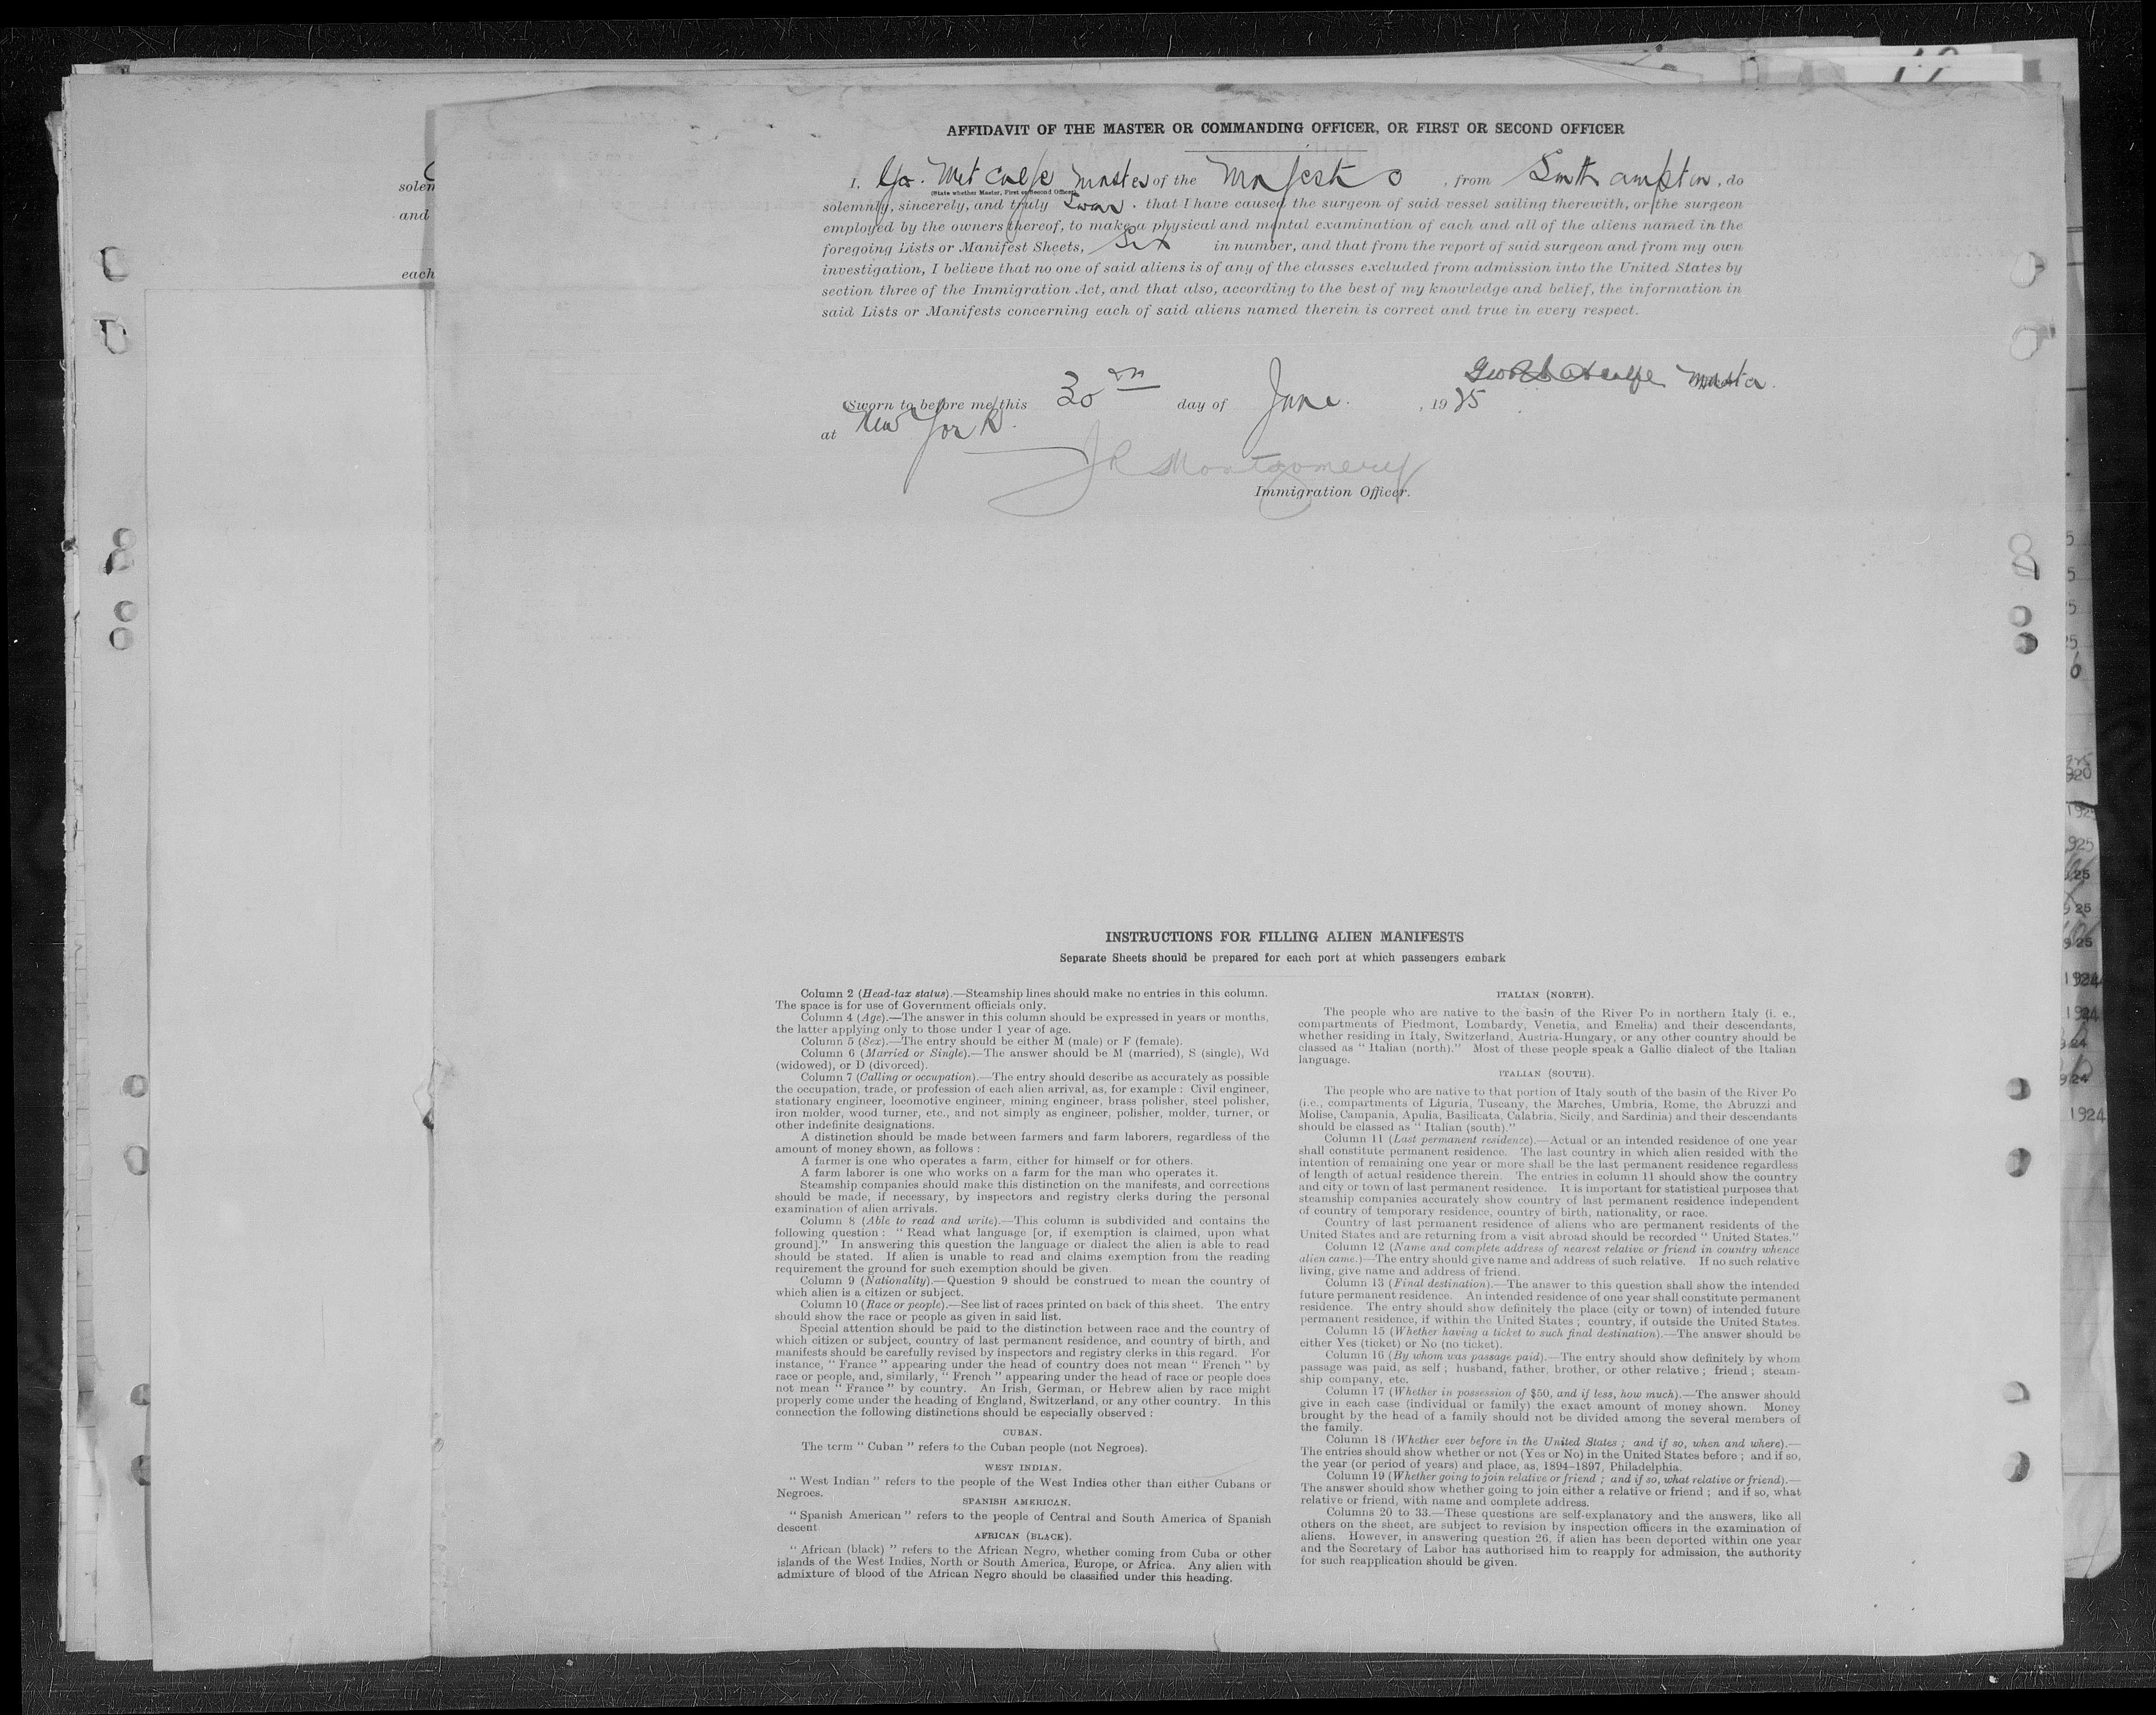 AFFIDAVIT OF THE MASTER OR COMMANDING OFFICER, OR FIRST OR SECOND OFFICER
I, Geo. Metcalfe Master of the Majestic, from Southampton, do
(State whether Master, First or Second Officer)
solemnly, sincerely, and truly Swear. that I have caused the surgeon of said vessel sailing therewith, or the surgeon
employed by the owners thereof, to make a physical and mental examination of each and all of the aliens named in the
foregoing Lists or Manifest Sheets, Six in number, and that from the report of said surgeon and from my own
investigation, I believe that no one of said aliens is of any of the classes excluded from admission into the United States by
section three of the Immigration Act, and that also, according to the best of my knowledge and belief, the information in
said Lists or Manifests concerning each of said aliens named therein is correct and true in every respect.
Metcalfe Master.
Sworn to before me this 30th day of June. , 1925
at New York.
JR Montgomery
Immigration Officer.
solem
and
each
INSTRUCTIONS FOR FILLING ALIEN MANIFESTS
Separate Sheets should be prepared for each port at which passengers embark
Column 2 (Head-tax status).—Steamship lines should make no entries in this column.
The space is for use of Government officials only.
Column 4 (Age).—The answer in this column should be expressed in years or months,
the latter applying only to those under 1 year of age.
Column 5 (Sex).—The entry should be either M (male) or F (female).
Column 6 (Married or Single).—The answer should be M (married), S (single), Wd
(widowed), or D (divorced).
Column 7 (Calling or occupation).—The entry should describe as accurately as possible
the occupation, trade, or profession of each alien arrival, as, for example : Civil engineer,
stationary engineer, locomotive engineer, mining engineer, brass polisher, steel polisher,
iron molder, wood turner, etc., and not simply as engineer, polisher, molder, turner, or
other indefinite designations.
A distinction should be made between farmers and farm laborers, regardless of the
amount of money shown, as follows :
A farmer is one who operates a farm, either for himself or for others.
A farm laborer is one who works on a farm for the man who operates it.
Steamship companies should make this distinction on the manifests, and corrections
should be made, if necessary, by inspectors and registry clerks during the personal
examination of alien arrivals.
Column 8 (Able to read and write).—This column is subdivided and contains the
following question : “ Read what language [or, if exemption is claimed, upon what
ground].” In answering this question the language or dialect the alien is able to read
should be stated. If alien is unable to read and claims exemption from the reading
requirement the ground for such exemption should be given.
Column 9 (Nationality).—Question 9 should be construed to mean the country of
which alien is a citizen or subject.
Column 10 (Race or people).—See list of races printed on back of this sheet. The entry
should show the race or people as given in said list.
Special attention should be paid to the distinction between race and the country of
which citizen or subject, country of last permanent residence, and country of birth, and
manifests should be carefully revised by inspectors and registry clerks in this regard. For
instance, “ France ” appearing under the head of country does not mean “ French ” by
race or people, and, similarly, “ French ” appearing under the head of race or people does
not mean “ France ” by country. An Irish, German, or Hebrew alien by race might
properly come under the heading of England, Switzerland, or any other country. In this
connection the following distinctions should be especially observed :
CUBAN.
The term “ Cuban ” refers to the Cuban people (not Negroes).
WEST INDIAN.
“ West Indian ” refers to the people of the West Indies other than either Cubans or
Negroes.
SPANISH AMERICAN.
“ Spanish American ” refers to the people of Central and South America of Spanish
descent
AFRICAN (BLACK).
“ African (black) ” refers to the African Negro, whether coming from Cuba or other
islands of the West Indies, North or South America, Europe, or Africa. Any alien with
admixture of blood of the African Negro should be classified under this heading.
ITALIAN (NORTH).
The people who are native to the basin of the River Po in northern Italy (i. e.,
compartments of Piedmont, Lombardy, Venetia, and Emelia) and their descendants,
whether residing in Italy, Switzerland, Austria-Hungary, or any other country should be
classed as “ Italian (north).” Most of these people speak a Gallic dialect of the Italian
language.
ITALIAN (SOUTH).
The people who are native to that portion of Italy south of the basin of the River Po
(i.e., compartments of Liguria, Tuscany, the Marches, Umbria, Rome, the Abruzzi and
Molise, Campania, Apulia, Basilicata, Calabria, Sicily, and Sardinia) and their descendants
should be classed as “ Italian (south).”
Column 11 (Last permanent residence).—Actual or an intended residence of one year
shall constitute permanent residence. The last country in which alien resided with the
intention of remaining one year or more shall be the last permanent residence regardless
of length of actual residence therein. The entries in column 11 should show the country
and city or town of last permanent residence. It is important for statistical purposes that
steamship companies accurately show country of last permanent residence independent
of country of temporary residence, country of birth, nationality, or race.
Country of last permanent residence of aliens who are permanent residents of the
United States and are returning from a visit abroad should be recorded “ United States.”
Column 12 (Name and complete address of nearest relative or friend in country whence
alien came.)—The entry should give name and address of such relative. If no such relative
living, give name and address of friend.
Column 13 (Final destination).—The answer to this question shall show the intended
future permanent residence. An intended residence of one year shall constitute permanent
residence. The entry should show definitely the place (city or town) of intended future
permanent residence, if within the United States ; country, if outside the United States.
Column 15 (Whether having a ticket to such final destination).—The answer should be
either Yes (ticket) or No (no ticket).
Column 16 (By whom was passage paid).—The entry should show definitely by whom
passage was paid, as self ; husband, father, brother, or other relative ; friend ; steam-
ship company, etc.
Column 17 (Whether in possession of $50, and if less, how much).—The answer should
give in each case (individual or family) the exact amount of money shown. Money
brought by the head of a family should not be divided among the several members of
the family.
Column 18 (Whether ever before in the United States ; and if so, when and where).—
The entries should show whether or not (Yes or No) in the United States before ; and if so,
the year (or period of years) and place, as, 1894–1897, Philadelphia.
Column 19 (Whether going to join relative or friend ; and if so, what relative or friend).—
The answer should show whether going to join either a relative or friend ; and if so, what
relative or friend, with name and complete address.
Columns 20 to 33.—These questions are self-explanatory and the answers, like all
others on the sheet, are subject to revision by inspection officers in the examination of
aliens. However, in answering question 26, if alien has been deported within one year
and the Secretary of Labor has authorised him to reapply for admission, the authority
for such reapplication should be given.